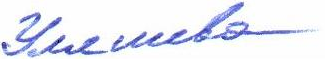 Уляшева